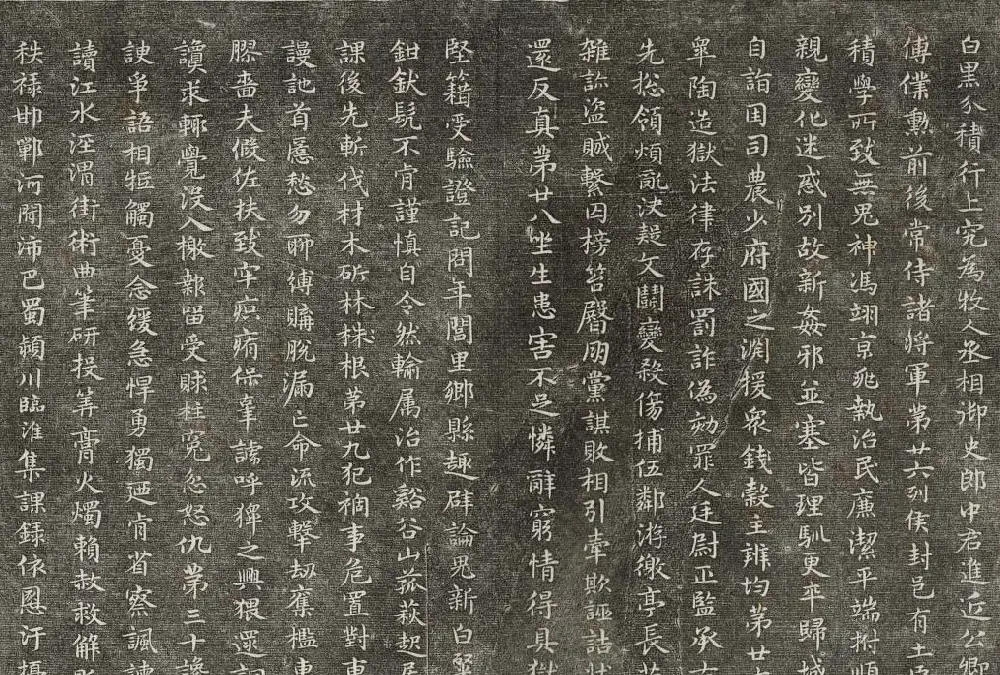 白黑分積行上究為牧人丞相御史郎中君進近公卿
傅僕勲前後常侍諸將軍第廿六列侯封邑有土臣
積學所致無鬼神馮翊京兆執治民廉潔平端拊順
親變化迷惑別故新姦邪並塞皆理馴更卒歸城
自詣因司農少府國之淵援衆錢穀主辨均第廿
皋陶造獄法律存誅罰詐偽劾罪人廷尉正監承古
先揔領煩亂決疑文鬬變殺傷捕伍鄰游徼亭長共
雜診盜賊繫囚榜笞臀朋黨謀敗相引牽欺誣詰狀
還反真第廿八坐生患害不足憐辭窮情得具獄
堅籍受驗證記問年閭里鄉縣趣辟論鬼新白粲
鉗釱髡不肯謹慎自令然輸属治作谿谷山菰萩起居
課後先斬伐材木斫林株根第廿九犯禍事危置對曹
謾訑首匿愁勿聊縛購脫漏亡命流攻擊劫奪檻車
膠嗇夫假佐扶致牢疻痏保辜謕呼獆之興猥還詗
讀求輒覺沒入檄報留受賕枉冤忿怒仇第三十讒
諛爭語相牴觸憂念緩急悍勇獨迺肯省察諷諫
讀江水涇渭街術曲筆研投筭膏火燭賴赦救解貶
秩祿邯鄲河間沛巴蜀潁川臨淮集課録依恩汙擾